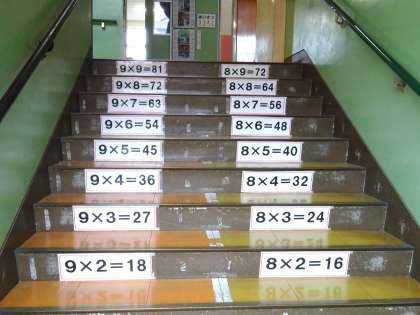 9×9=81 8×9=72
9×8=72 8×8=64
9×7=63 8×7=56
9×6=54 8×6=48
9×5=45 8×5=40
9×4=36 8×4=32
9×3=27 8×3=24
9×2=18 8×2=16